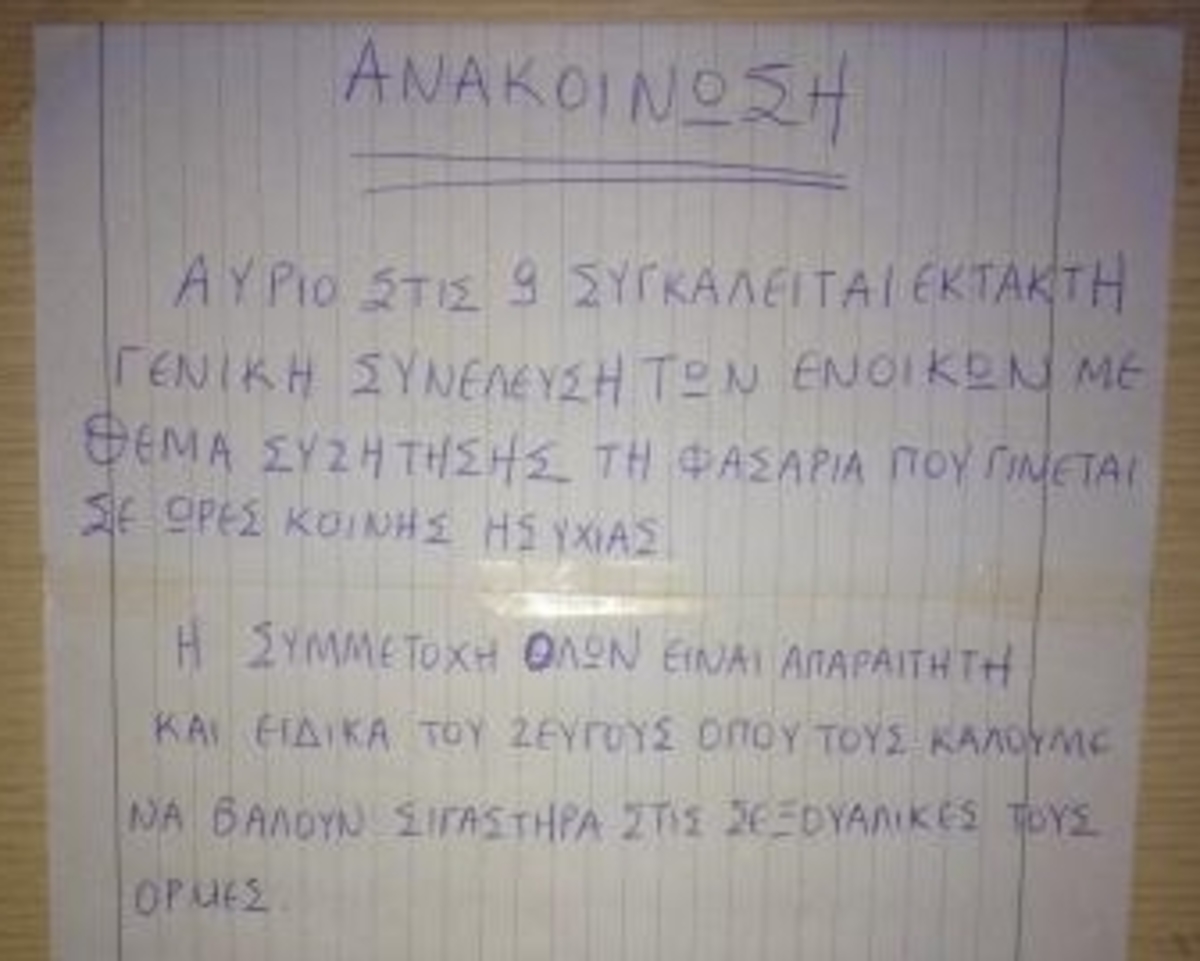 ΑΝΑΚΟΙΝΩΣΗ
ΑΥΡΙΟ ΣΤΙΣ 9 ΣΥΓΚΑΛΕΙΤΑΙ ΕΚΤΑΚΤΗ
ΓΕΝΙΚΗ ΣΥΝΕΛΕΥΣΗ ΤΩΝ ΕΝΟΙΚΩΝ ΜΕ
ΘΕΜΑ ΣΥΖΗΤΗΣΗΣ ΤΗ ΦΑΣΑΡΙΑ ΠΟΥ ΓΙΝΕΤΑΙ
ΣΕ ΩΡΕΣ ΚΟΙΝΗΣ ΗΣΥΧΙΑΣ
Η ΣΥΜΜΕΤΟΧΗ ΟΛΩΝ ΕΙΝΑΙ ΑΠΑΡΑΙΤΗΤΗ
ΚΑΙ ΕΙΔΙΚΑ ΤΟΥ ΖΕΥΓΟΥΣ ΟΠΟΥ ΤΟΥΣ ΚΑΛΟΥΜΕ
ΝΑ ΒΑΛΟΥΝ ΣΙΓΑΣΤΗΡΑ ΣΤΙΣ ΣΕΞΟΥΑΛΙΚΕΣ ΤΟΥΣ
ΟΡΜΕΣ.